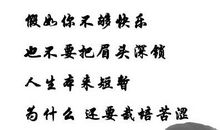 假如你不够快乐
也不要把眉头深锁
人生本来短暂
为什么 还要栽培苦涩